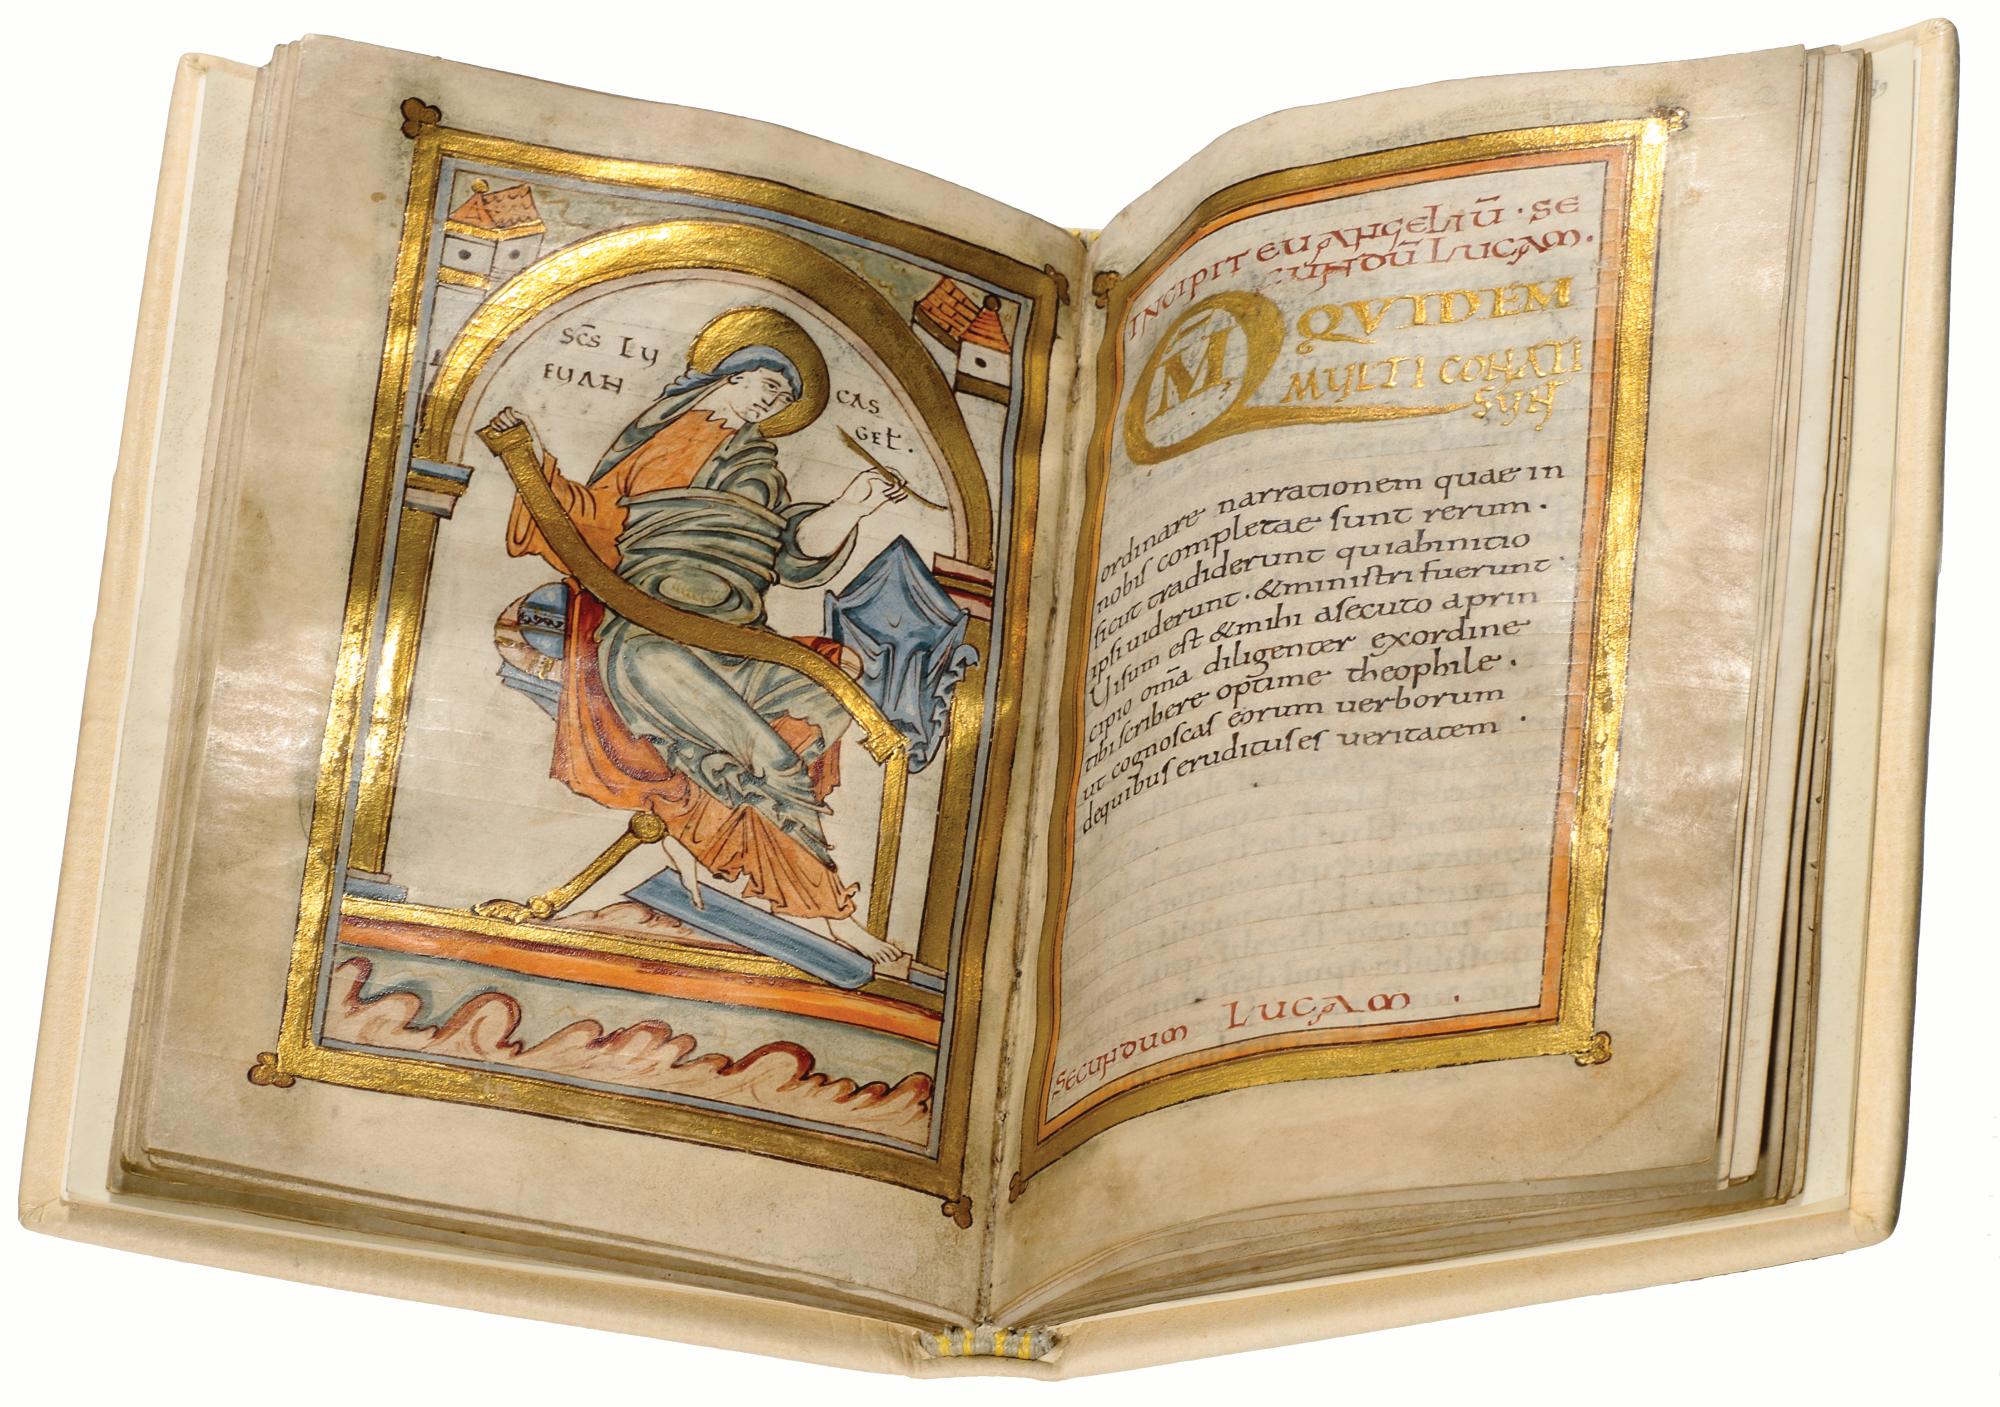 SC̄S LU
CAS
EUAN
GEL̄.
INCIPIT EUANGELIŪ · SE
CUNDŪ LUCAM.
QM̄ QVIDEM
MULTI CONATI
SUN
ordinare narrationem quae in
nobis completae sunt rerum.
sicut tradiderunt qui abinitio
ipsi uiderunt · & ministri fuerunt ·
Uisum est & mihi asecuto aprin
cipio om̄a diligenter exordine
tibi scribere optime theophile.
ut cognoscas eorum uerborum
dequibus eruditus es ueritatem ·
SECUNDUM LUCAM .